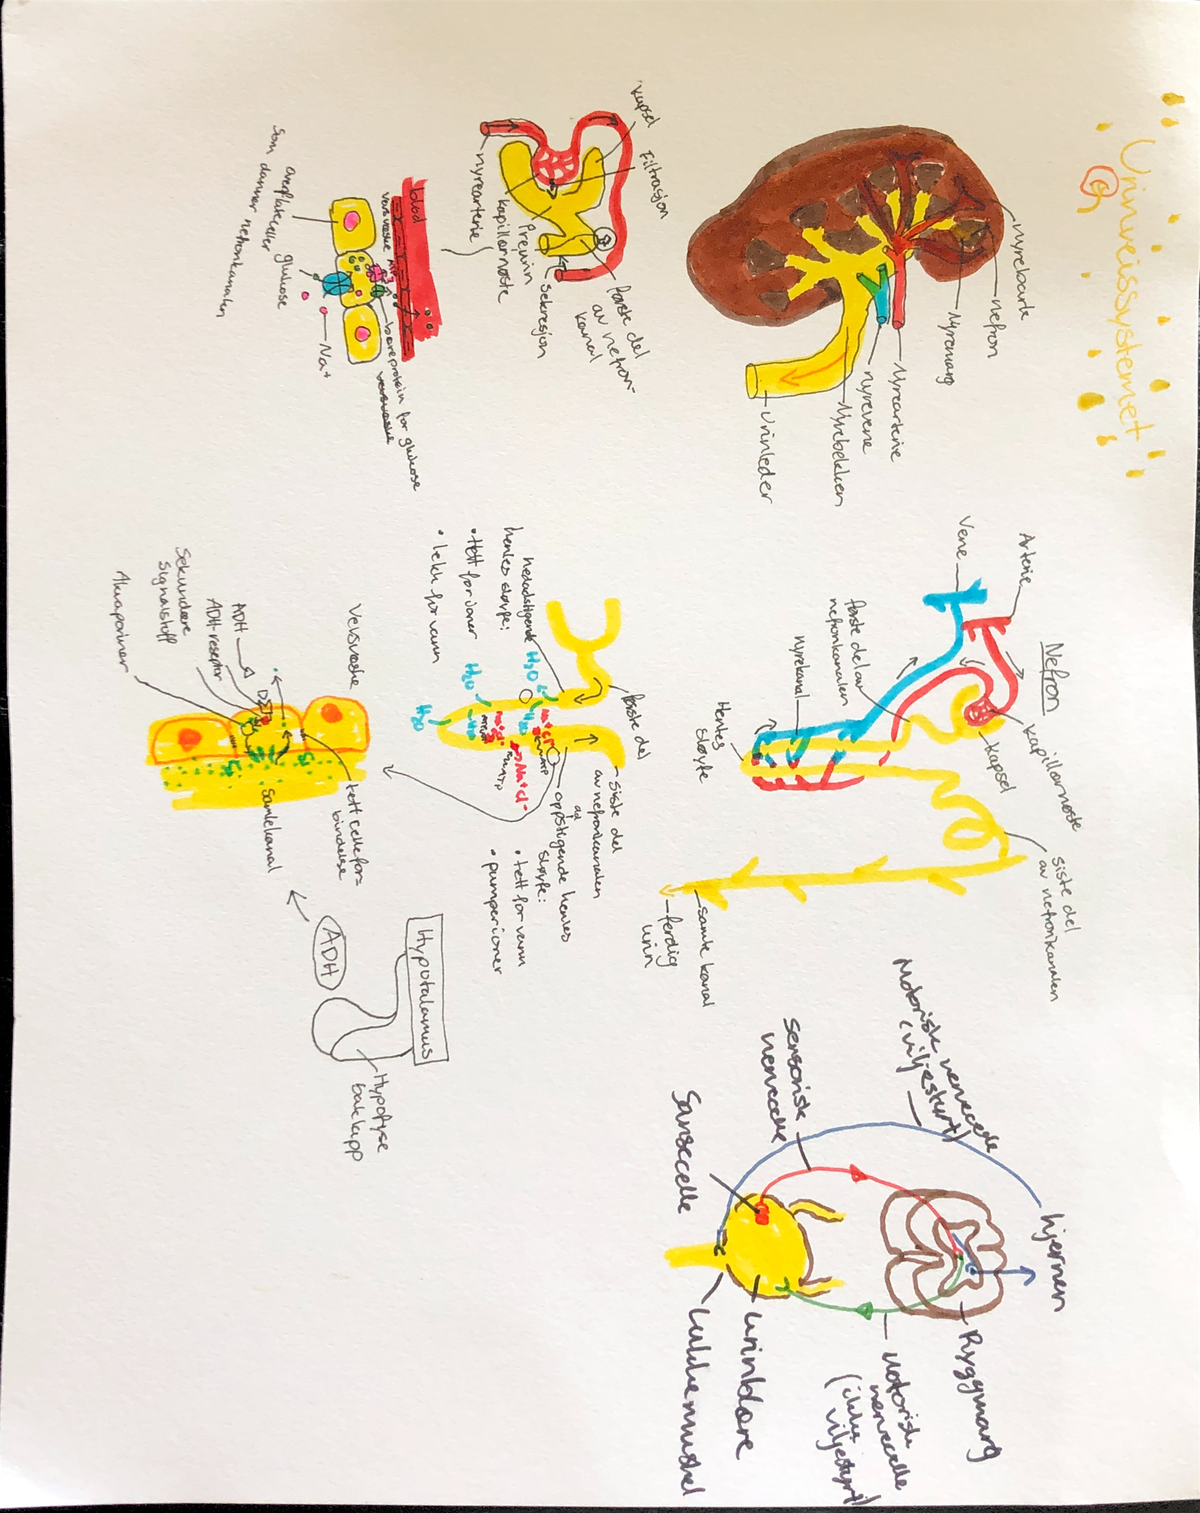 Urinveissystemet
nyrebark
nefron
Nyremarg
Nyrearterie
nyrevene
Nyrebekken
Urinleder
kapsel
Filtrasjon
første del
av nefron-
kanal
sekresjon
Preurin
kapillarnøste
nyrearterie
blod
vevsvæske
bæreprotein for glukose
vevsvæske
Na+
glukose
overflateceller
som danner nefronkanalen
Nefron
Arterie
Vene
kapillarnøste
kapsel
første del av
nefronkanalen
nyrekanal
Henles
sløyfe
siste del
av nefronkanalen
samle kanal
ferdig
urin
første del
siste del
av nefronkanalen
nedadstigende
henles sløyfe:
• tett for ioner
• lekk for vann
H₂O
H₂O
H₂O
Na+Cl-
oppstigende henles
sløyfe:
• tett for vann
• pumper ioner
Vevsvæske
ADH
ADH-reseptor
Sekundære
signalstoff
Akvaporiner
tett cellefor-
bindelse
samlekanal
Hypotalamus
ADH
Hypofyse
baklapp
hjernen
Motorisk nervecelle
(viljestyrt)
sensorisk
nervecelle
Sansecelle
Ryggmarg
Motorisk
nervecelle
(ikke
viljestyrt)
urinblære
Lukkemuskel